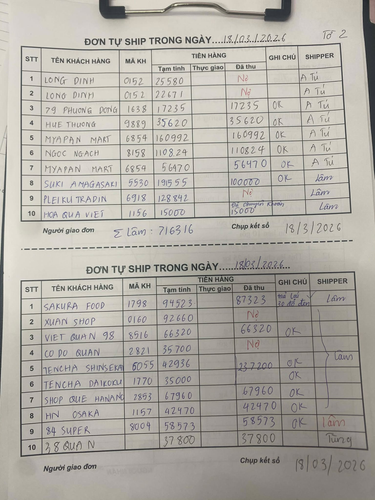 Tờ 2
ĐƠN TỰ SHIP TRONG NGÀY 18/03/2026
STT TÊN KHÁCH HÀNG MÃ KH TIỀN HÀNG GHI CHÚ SHIPPER
Tạm tính Thực giao Đã thu
1 LONG DINH 0152 25580 Nợ A Tú
2 LONG DINH 0152 22671 Nợ A Tú
3 79 PHUONG DONG 1638 17235 17235 OK A Tú
4 HUE THUONG 9889 35620 35620 OK A Tú
5 MYAPAN MART 6854 160992 160992 OK A Tú
6 NGOC NGACH 8158 110824 110824 OK A Tú
7 MYAPAN MART 6854 56470 56470 OK A Tú
8 SUKI AMAGASAKI 5530 191555 100000 OK Lâm
9 PLEIKU TRADIN 6918 128842 Nợ Lâm
10 HOA QUA VIET 1156 15000 Đã chuyển khoản 15000 Lâm
Người giao đơn Σ Lâm: 716316 Chụp kết số 18/3/2026
ĐƠN TỰ SHIP TRONG NGÀY 18/03/2026
STT TÊN KHÁCH HÀNG MÃ KH TIỀN HÀNG GHI CHÚ SHIPPER
Tạm tính Thực giao Đã thu
1 SAKURA FOOD 1798 94523 87323 Lâm
2 XUAN SHOP 0160 92660 Nợ
3 VIET QUAN 98 8516 66320 66320 OK
4 CO DU QUAN 2821 35700 Nợ
5 TENCHA SHINSEKAI 5055 42936 237200 OK Lâm
6 TENCHA DAIKOKU 1770 35000 OK
7 SHOP QUE HANANG 2853 67960 67960 OK
8 HN OSAKA 1157 42470 42470 OK
9 84 SUPER 8004 58573 58573 OK Lâm
10 38 QUAN 37800 37800 Tùng
Người giao đơn Chụp kết số 18/03/2026